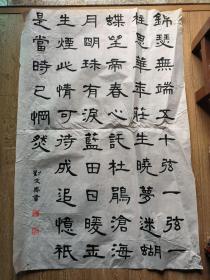 錦瑟無端五十弦一弦一
柱思華年莊生曉夢迷蝴
蝶望帝春心託杜鵑滄海
月明珠有淚藍田日暖玉
生煙此情可待成追憶衹
是當時已惘然
劉文書